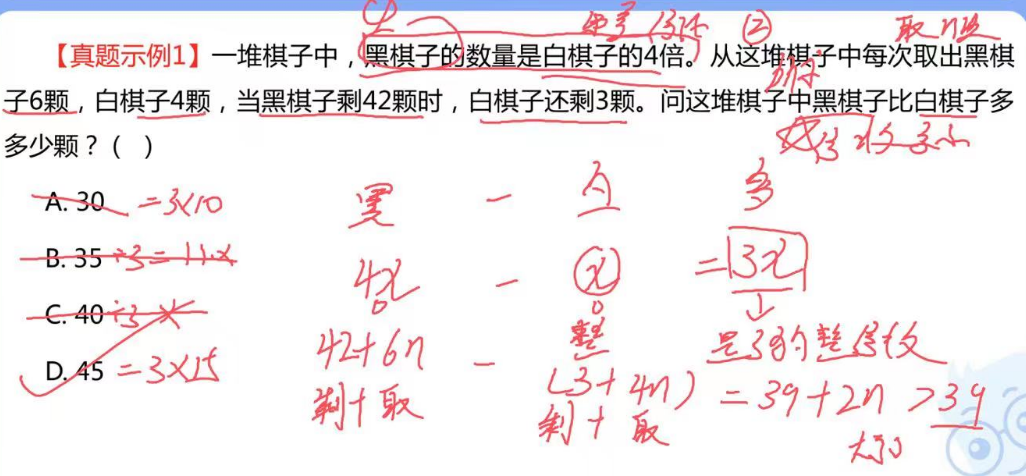 取n次
【真题示例1】一堆棋子中，黑棋子的数量是白棋子的4倍。从这堆棋子中每次取出黑棋
子6颗，白棋子4颗，当黑棋子剩42颗时，白棋子还剩3颗。问这堆棋子中黑棋子比白棋子多
多少颗？（ ）
A. 30 =3×10
B. 35 ÷3=11.x
C. 40 ÷3 ×
D. 45 =3×15
黑 - 白 多
4x - x =3x
整 是3的整倍数
42+6n - (3+4n) =39+2n >39
剩+取 剩+取 大于